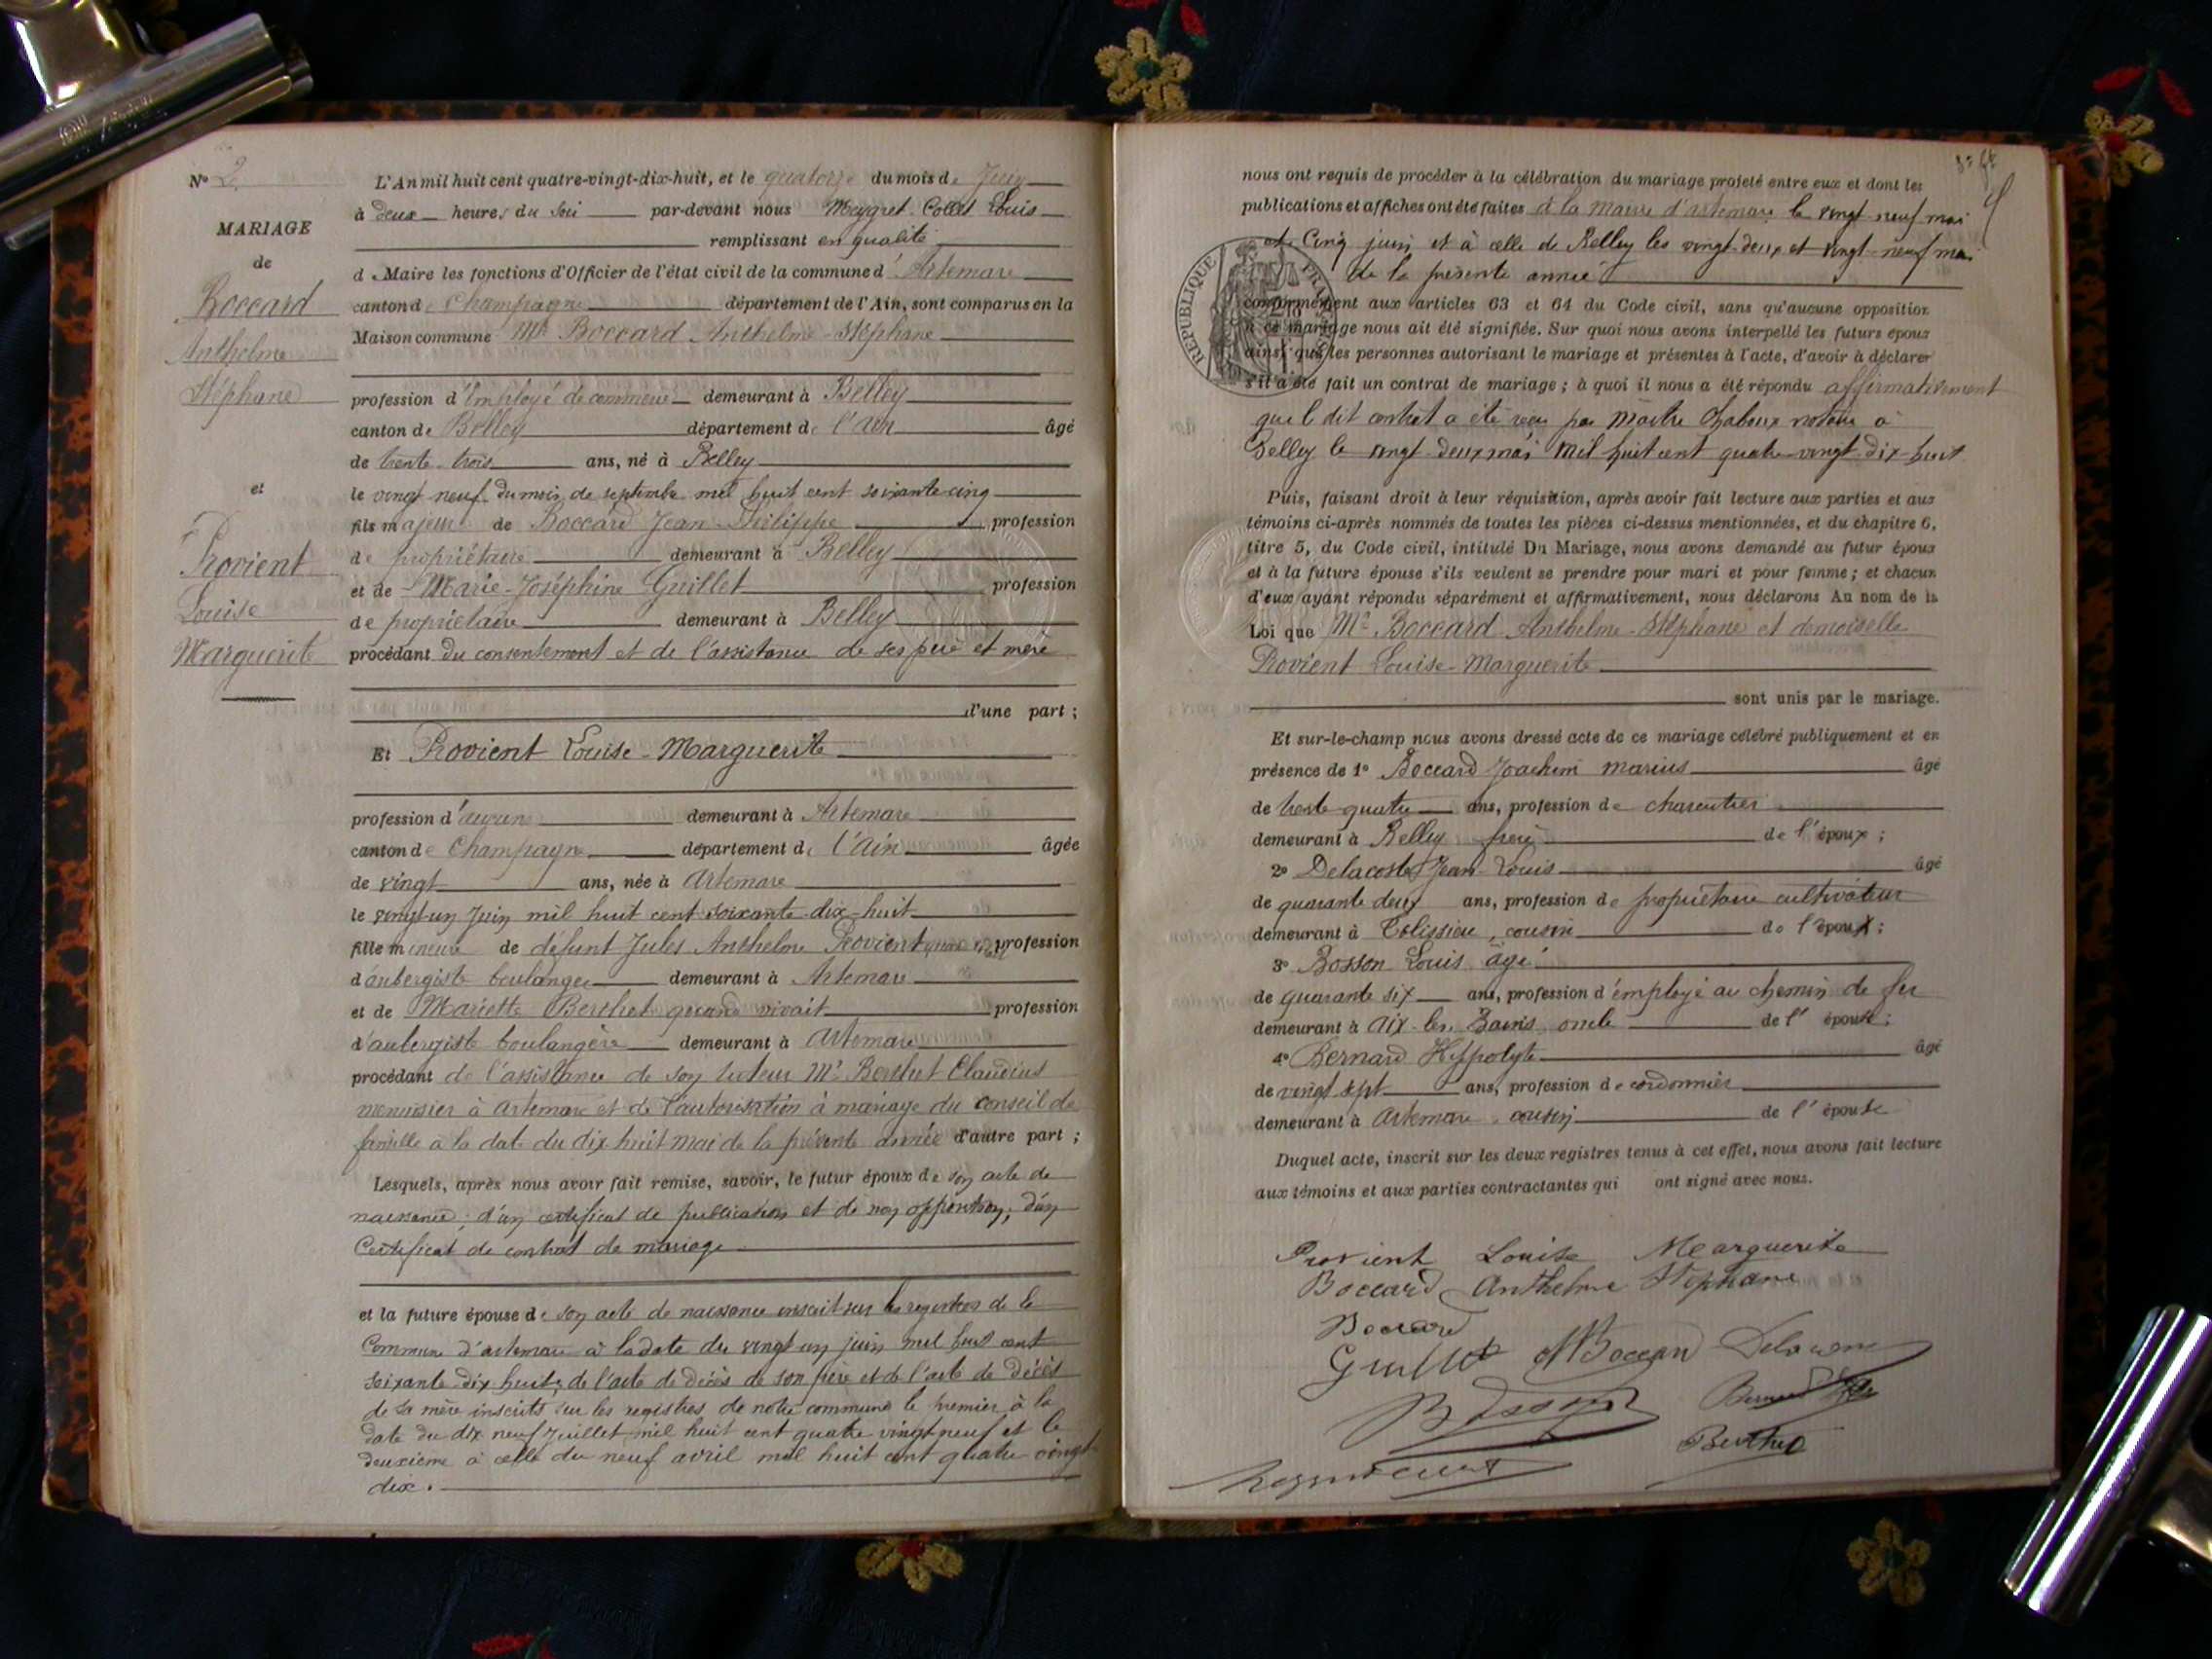 N° 2
MARIAGE
de
Boccard
Anthelme
Stéphane
et
Provient
Louise
Marguerite
L'An mil huit cent quatre-vingt-dix-huit, et le quatorze du mois de Juin
à deux heures du soir par-devant nous Meygret-Collet Louis
remplissant en qualité
de Maire les fonctions d'Officier de l'état civil de la commune d'Artemare
canton de Champagne département de l'Ain, sont comparus en la
Maison commune Mr Boccard Anthelme-Stéphane
profession d'Employé de commerce demeurant à Belley
canton de Belley département de l'Ain âgé
de trente-trois ans, né à Belley
le vingt neuf du mois de septembre mil huit cent soixante-cinq
fils majeur de Boccard Jean-Philippe profession
de propriétaire demeurant à Belley
et de Marie-Joséphine Guillet profession
de propriétaire demeurant à Belley
procédant du consentement et de l'assistance de ses père et mère
d'une part ;
Et Provient Louise-Marguerite
profession d'aucune demeurant à Artemare
canton de Champagne département de l'Ain âgée
de vingt ans, née à Artemare
le vingt-un Juin mil huit cent soixante-dix-huit
fille mineure de défunt Jules Anthelme Provient profession
d'aubergiste boulanger demeurant à Artemare
et de Mariette Berthet quand vivait profession
d'aubergiste boulangère demeurant à Artemare
procédant de l'assistance de son tuteur Mr Berthet Claudius
menuisier à Artemare et de l'autorisation à mariage du conseil de
famille à la date du dix huit mai de la présente année d'autre part ;
Lesquels, après nous avoir fait remise, savoir, le futur époux de son acte de
naissance, d'un certificat de publication et de non opposition, d'un
Certificat de contrat de mariage
et la future épouse de son acte de naissance inscrit sur les registres de la
Commune d'artemare à la date du vingt un juin mil huit cent
soixante dix huit, de l'acte de décès de son père et de l'acte de décès
de sa mère inscrits sur les registres de notre commune le premier à la
date du dix neuf Juillet mil huit cent quatre vingt neuf et le
deuxième à celle du neuf avril mil huit cent quatre vingt
dix.
nous ont requis de procéder à la célébration du mariage projeté entre eux et dont les
publications et affiches ont été faites à la Mairie d'artemare le vingt-neuf mai
et Cinq juin et à celle de Belley les vingt-deux et vingt-neuf mai
de la présente année
RÉPUBLIQUE FRANÇAISE
conformément aux articles 63 et 64 du Code civil, sans qu'aucune opposition
à ce mariage nous ait été signifiée. Sur quoi nous avons interpellé les futurs époux
ainsi que les personnes autorisant le mariage et présentes à l'acte, d'avoir à déclarer
s'il a été fait un contrat de mariage ; à quoi il nous a été répondu affirmativement
que le dit contrat a été reçu par Maître notaire à
Belley le vingt-deux mai mil huit cent quatre-vingt-dix-huit
Puis, faisant droit à leur réquisition, après avoir fait lecture aux parties et aux
témoins ci-après nommés de toutes les pièces ci-dessus mentionnées, et du chapitre 6,
titre 5, du Code civil, intitulé Du Mariage, nous avons demandé au futur époux
et à la future épouse s'ils veulent se prendre pour mari et pour femme ; et chacun
d'eux ayant répondu séparément et affirmativement, nous déclarons Au nom de la
Loi que Mr Boccard Anthelme-Stéphane et demoiselle
Provient Louise-Marguerite
sont unis par le mariage.
Et sur-le-champ nous avons dressé acte de ce mariage célébré publiquement et en
présence de 1° Boccard Joachim Marius âgé
de trente-quatre ans, profession de charcutier
demeurant à Belley frère de l'époux ;
2° Delacoste Jean-Louis âgé
de quarante deux ans, profession de propriétaire cultivateur
demeurant à cousin de l'époux ;
3° Bosson Louis âgé
de quarante six ans, profession d'employé au chemin de fer
demeurant à Aix-les-Bains oncle de l'épouse ;
4° Bernard Hippolyte âgé
de vingt sept ans, profession de cordonnier
demeurant à Artemare, cousin de l'épouse
Duquel acte, inscrit sur les deux registres tenus à cet effet, nous avons fait lecture
aux témoins et aux parties contractantes qui ont signé avec nous.
Provient Louise Marguerite
Boccard Anthelme Stéphane
Boccard
Guillet M Boccard Delacoste
Bosson Bernard
Berthet